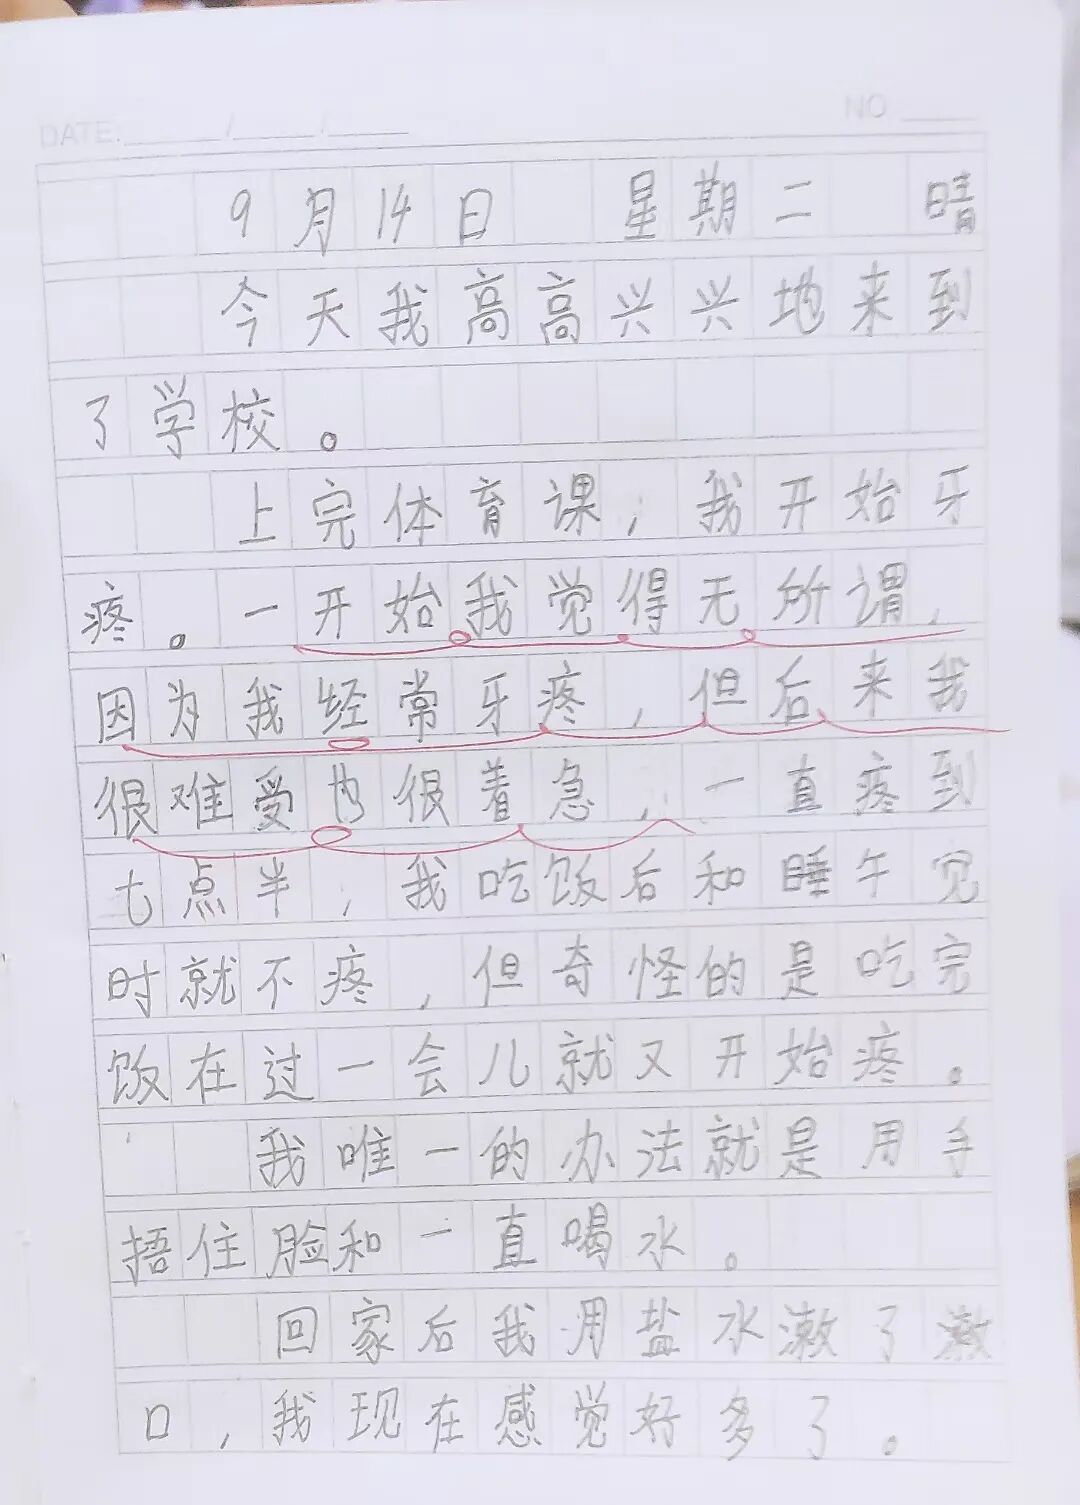 DATE: / / NO
9月14日 星期二 晴
今天我高高兴兴地来到
了学校。
上完体育课,我开始牙
疼。一开始我觉得无所谓,
因为我经常牙疼,但后来我
很难受也很着急,一直疼到
七点半,我吃饭后和睡午觉
时就不疼,但奇怪的是吃完
饭在过一会儿就又开始疼。
我唯一的办法就是用手
捂住脸和一直喝水。
回家后我用盐水漱了漱
口,我现在感觉好多了。